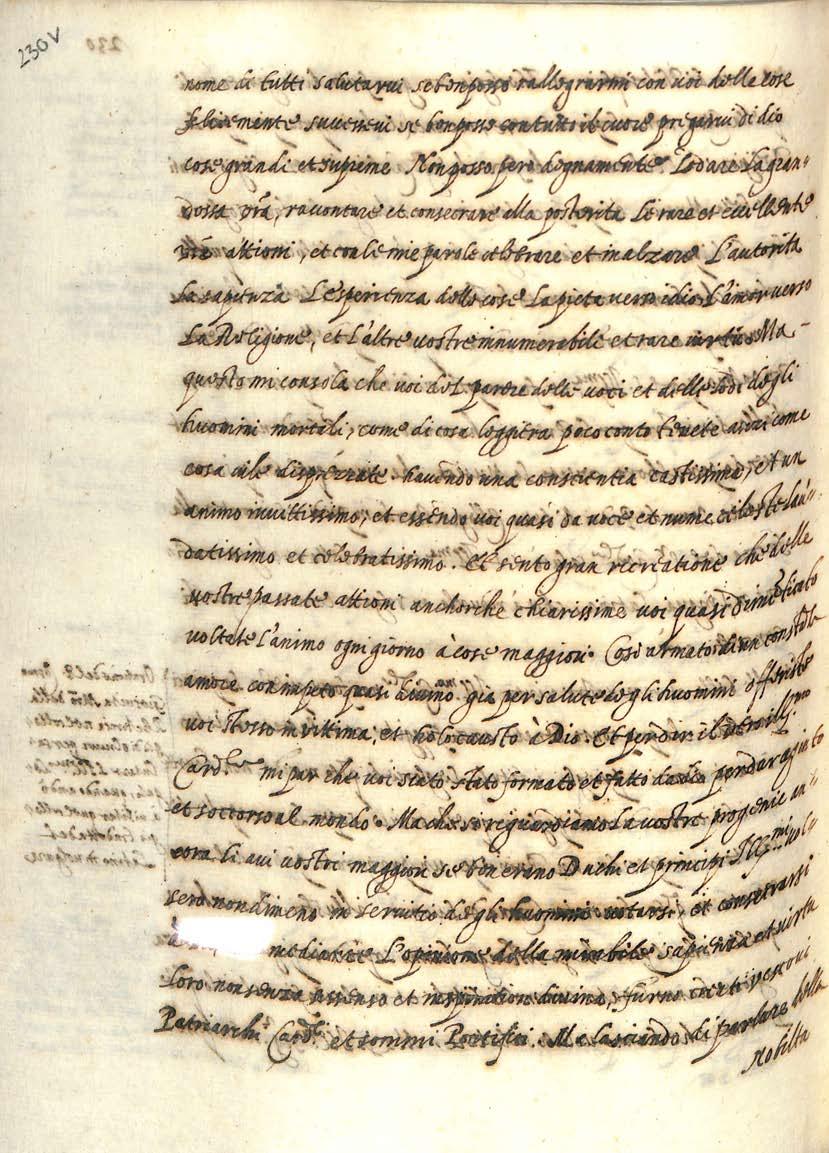 230v
nome di tutti salutarvi se ben posso rallegrarmi con voi delle cose
felicemente successevi se ben posso con tutto il cuore pregarvi di dio
cose grandi et supreme Non posso pero degnamente Lodare La gran=
dezza vrã, raccontare et consecrare alla posterita Le rare et eccellente
vrẽ attioni, et con le mie parole celebrare et inalzare L'autorita
La sapienza L'esperienza delle cose La pieta verso idio L'amor verso
La Religione, et L'altre vostre innumerabile et rare virtù. Ma
questo mi consola che voi del parere delle voci et delle lodi degli
huomini mortali, come di cosa leggiera poco conto tenete anzi come
cosa vile disprezzate havendo una conscientia castissima, et un
animo invittissimo, et essendo voi quasi da voce et nume celeste lau=
datissimo et celebratissimo. Et sento gran recreatione che delle
vostre passate attioni anchorche chiarissime voi quasi dimẽticato
voltate L'animo ogni giorno à cose maggiori. Cosi armato di un
amore con impeto quasi divino gia per salute degli huomini offeriste
voi stesso in vittima, et holocausto à Dio. Et per dir il vero Ill.mo
Card.le mi par che voi siate stato formato et fatto da dio per dar agiuto
et soccorso al mondo. Ma che se riguardiamo La vostra progenie an=
cora li avi vostri maggiori se ben erano Duchi et principi Ill.mi vol
sero nondimeno in servitio degli huomini votarsi, et consecrarsi
à mediante L'opinione della mirabile sapienza et virtu
Loro non senza assenso et inspiration divina, furno eletti vescovi
Patriarchi Card.li et sommi Pontifici. Ma lasciando di parlare della
Nobilta